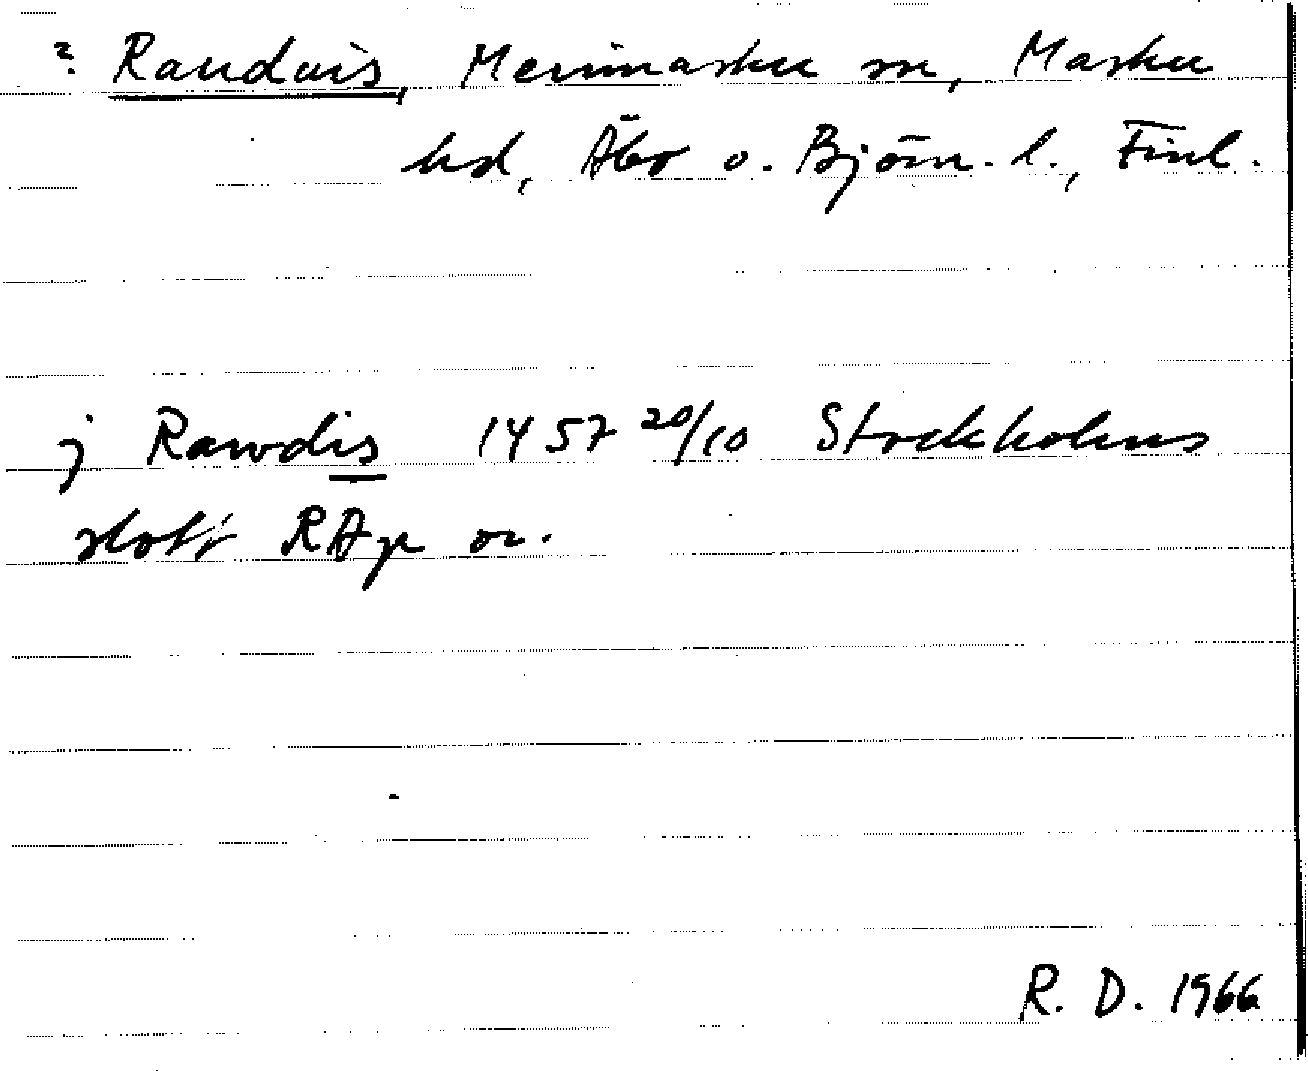 ? Raudais, Merimasku sn, Masku
hd, Åbo o. Björn. l., Finl.
j Rawdis 1457 20/10 Stockholms
slott RAp or.
R. D. 1966